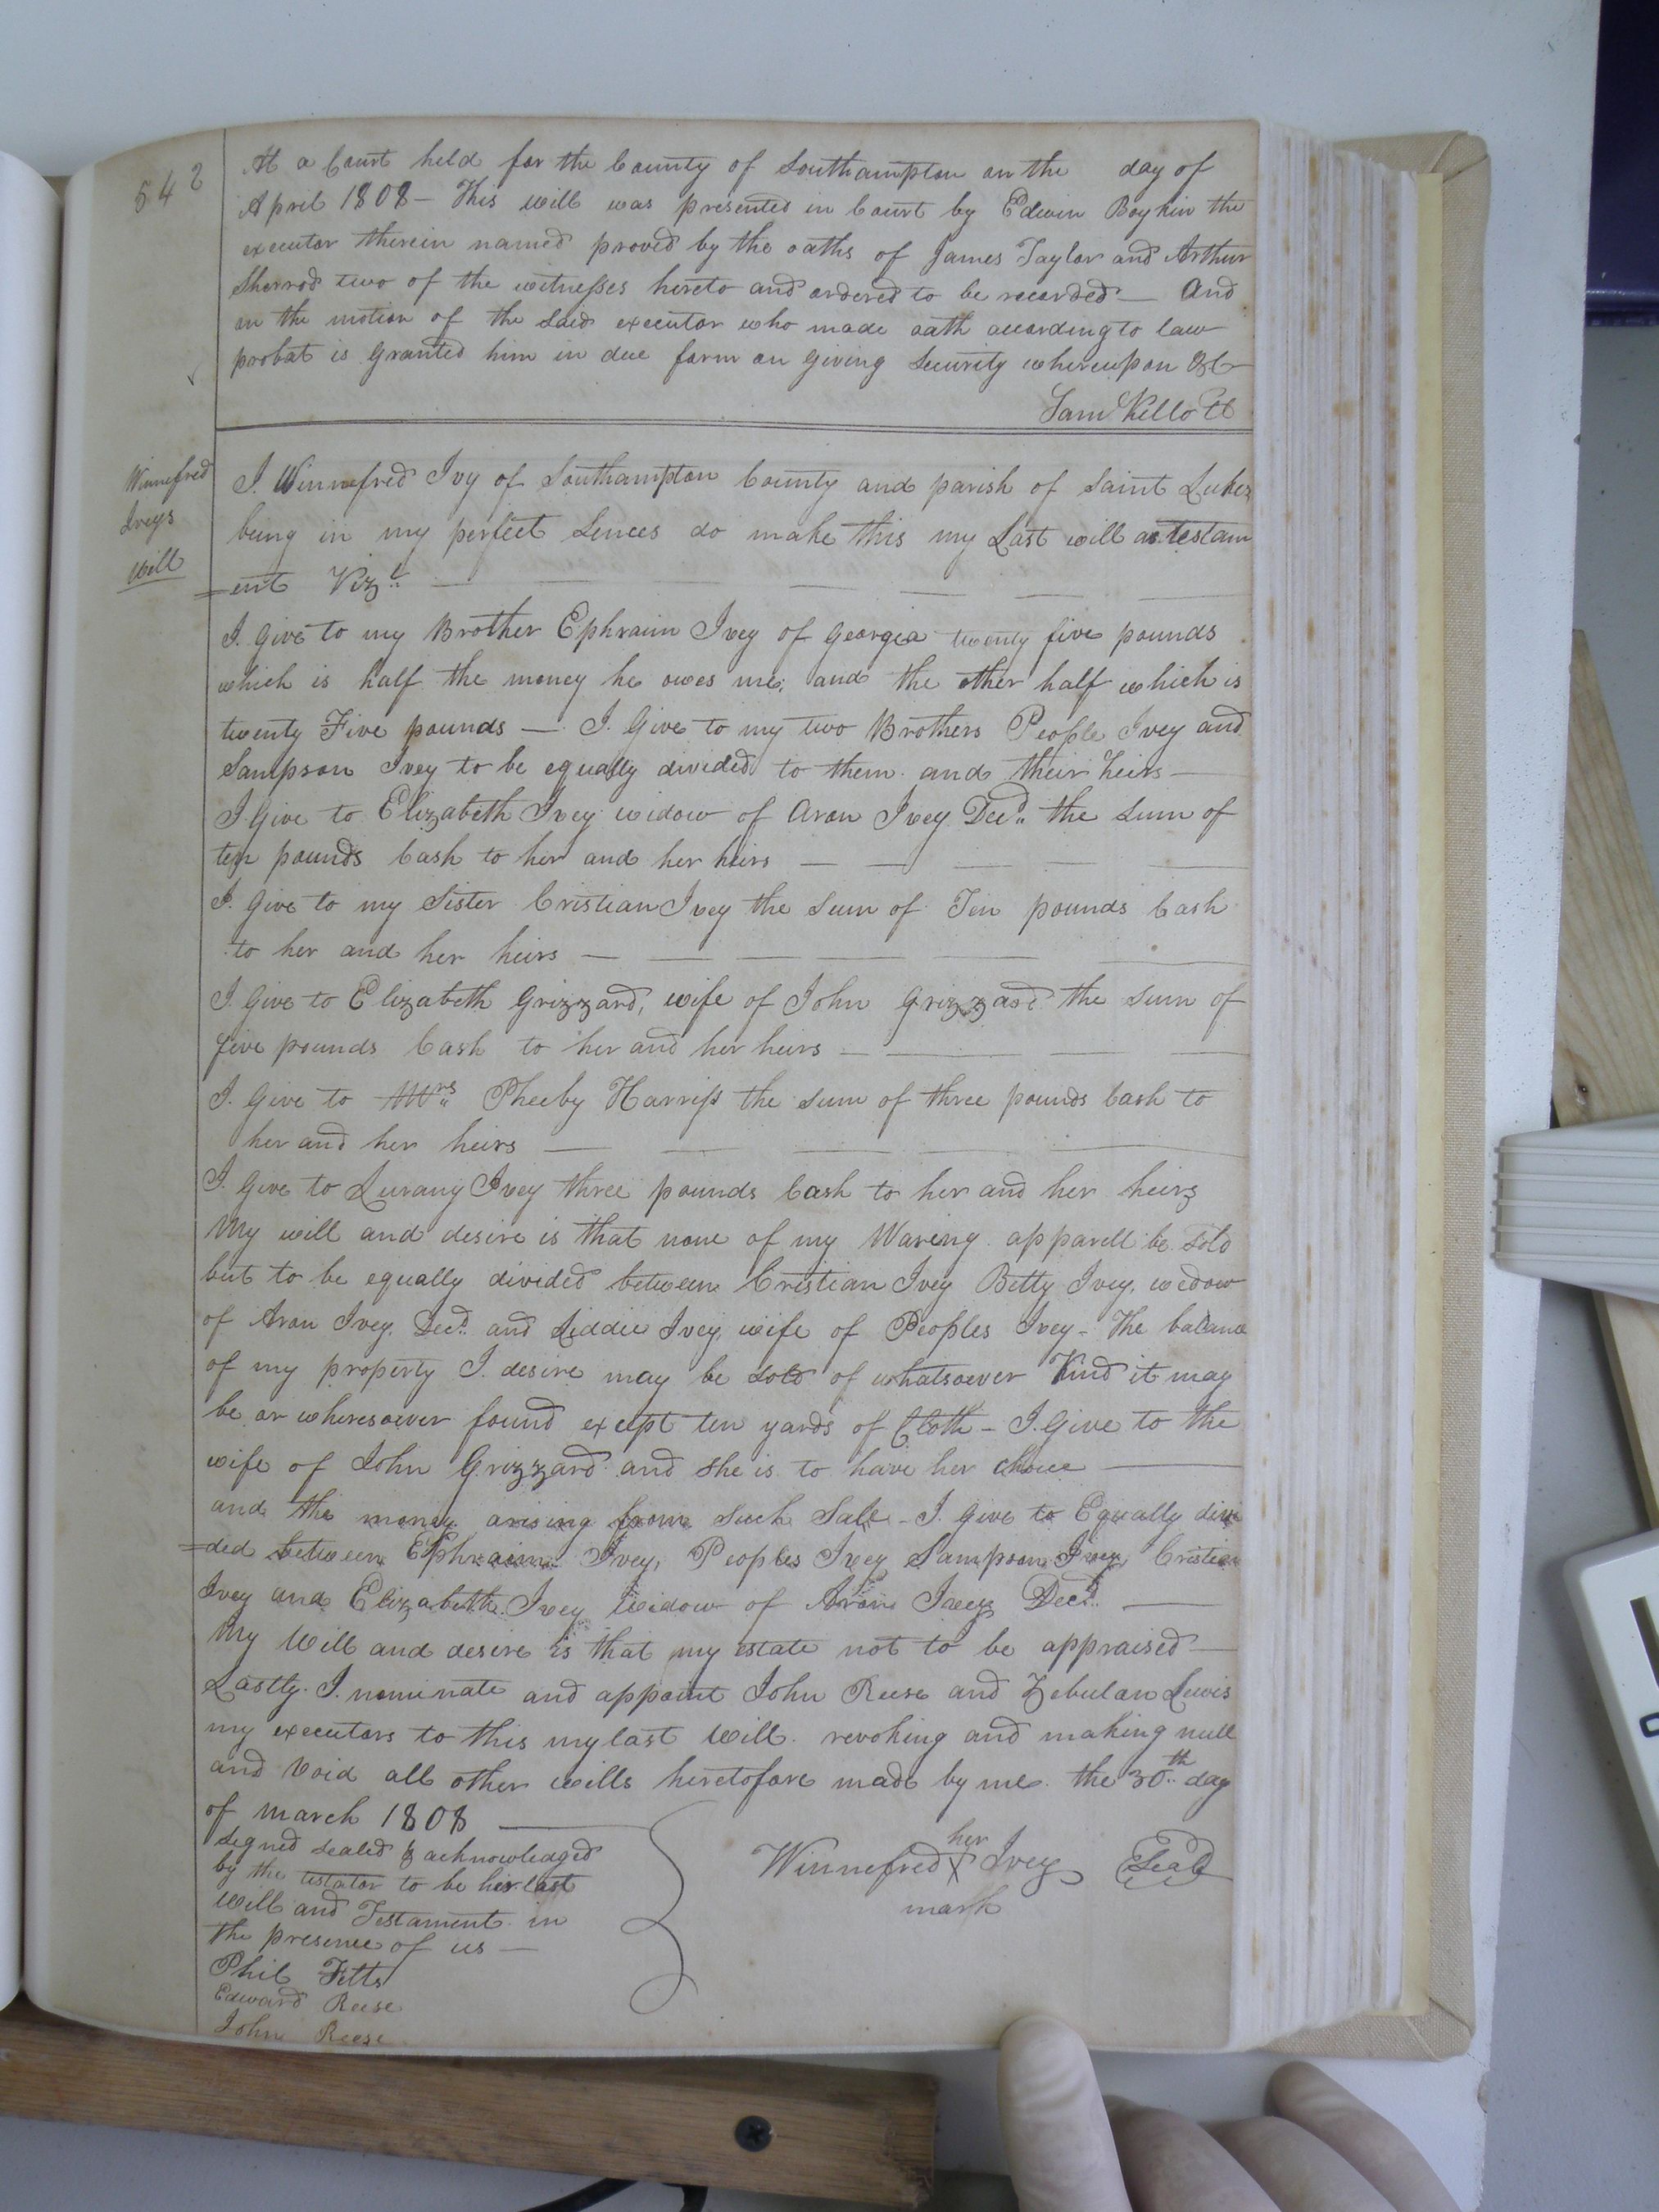 542
At a Court held for the County of Southampton on the day of
April 1808 – This will was presented in Court by Edwin Boykin the
executor therein named proved by the oaths of James Taylor and Arthur
Sherrod two of the witnesses hereto and ordered to be recorded – And
on the motion of the said executor who made oath according to law
probat is granted him in due form on giving security whereupon &c
Saml Kello CC
Winnefred
Iveys
Will
I. Winnefred Ivy of Southampton County and parish of Saint Lukes
being in my perfect Sences do make this my Last will as testam
=ent Vizt
I. Give to my Brother Ephraim Ivey of Georgia twenty five pounds
which is half the money he owes me; and the other half which is
twenty Five pounds – I. Give to my two Brothers People Ivey and
Sampson Ivey to be equally divided to them and their heirs –
I. Give to Elizabeth Ivey widow of Aron Ivey Decd. the sum of
ten pounds Cash to her and her heirs –
I. Give to my Sister Cristian Ivey the sum of Ten pounds Cash
to her and her heirs –
I. Give to Elizabeth Grizzard, wife of John Grizzard the sum of
five pounds Cash to her and her heirs –
I. Give to Mrs. Pheeby Harriss the sum of three pounds Cash to
her and her heirs –
I. Give to Lurany Ivey three pounds Cash to her and her heirs
My will and desire is that none of my Waring apparell be sold
but to be equally divided between Cristian Ivey Betty Ivey, wedow
of Aron Ivey, Decd. and Liddie Ivey, wife of Peoples Ivey – The balance
of my property I. desire may be sold of whatsoever Kind it may
be or wheresoever found except ten yards of Cloth – I. Give to the
wife of John Grizzard and she is to have her choice –
and the money arising from such Sale – I. Give to Equally divi
=ded between Ephraim Ivey, Peoples Ivey Sampson Ivey, Cristian
Ivey and Elizabeth Ivey widow of Aron Ivey Decd. –
My Will and desire is that my estate not to be appraised –
Lastly. I. nominate and appoint John Reese and Zebulon Lewis
my executors to this my last Will. revoking and making null
and Void all other wills heretofore made by me. the 30th. day
of march 1808
Signed sealed & acknowledged
by the testator to be her last
Will and Testament in
the presence of us –
Phil Fitts
Edward Reese
John Reese
her
Winnefred X Ivey Seal
mark